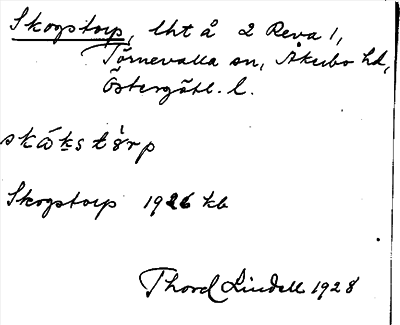 Skogstorp, lht å 2 Reva 1,
Törnevalla sn, Åkerbo hd,
Östergötl. l.
skåkstòrp
Skogstorp 1926 kb
Thord Lindell 1928